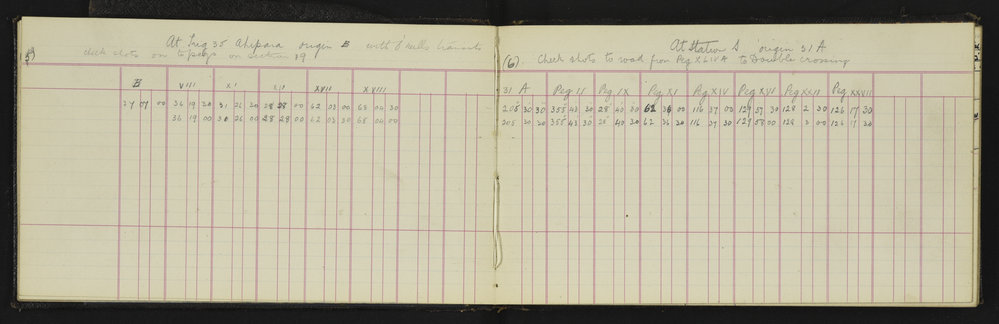 (5)
At Trig 35 Ahipara origin B with O'Neills transit
check shots on to pegs on section 89
B VIII XI XII XVII XVIII
27 07 00 36 19 20 31 26 30 28 28 00 62 03 00 68 04 30
36 19 00 31 26 00 28 28 00 62 03 30 68 04 00
(6)
At Station S origin 31 A
Check shots to road from Peg XLIVA to Double Crossing
31 A Peg II Peg IX Peg XI Peg XIV Peg XVI Peg XXII Peg XXVII
205 30 30 355 43 30 28 40 30 62 36 00 116 37 00 129 57 30 128 2 30 126 17 30
205 30 30 355 43 30 28 40 30 62 36 30 116 37 30 129 58 00 128 2 00 126 17 30